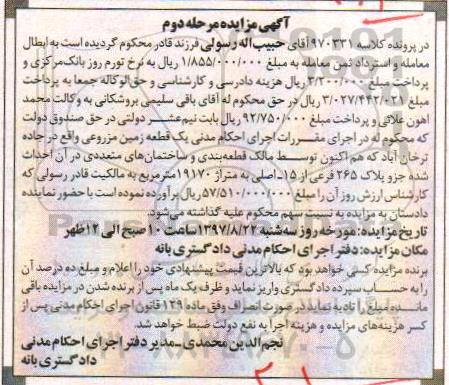 آگهی مزایده مرحله دوم
در پرونده کلاسه ۹۷۰۳۳۱ آقای حبیب اله رسولی فرزند قادر محکوم گردیده است به ابطال
معامله و استرداد ثمن معامله به مبلغ ۱/۸۵۵/۰۰۰/۰۰۰ ریال به نرخ تورم روز بانک مرکزی و
پرداخت مبلغ ۳/۲۰۰/۰۰۰ ریال هزینه دادرسی و کارشناسی و حق الوکاله جمعا به پرداخت
مبلغ ۳/۰۲۷/۴۴۲/۰۲۱ ریال در حق محکوم له آقای باقی سلیمی بروشکانی به وکالت محمد
اهون علائی و پرداخت مبلغ ۹۲/۷۵۰/۰۰۰ ریال بابت نیم عشر دولتی در حق صندوق دولت
که محکوم له در اجرای مقررات اجرای احکام مدنی یک قطعه زمین مزروعی واقع در جاده
ترخان آباد که هم اکنون توسط مالک قطعه بندی و ساختمان های متعددی در آن احداث
شده جزو پلاک ۲۶۵ فرعی از ۱۵ـ اصلی به متراژ ۱۹۱۷۰ مترمربع به مالکیت قادر رسولی که
کارشناس ارزش روز آن را مبلغ ۵۷/۵۱۰/۰۰۰/۰۰۰ ریال برآورده نموده است با حضور نماینده
دادستان به مزایده به نسبت سهم محکوم علیه گذاشته می شود.
تاریخ مزایده: مورخه روز سه شنبه ۱۳۹۷/۸/۲۲ ساعت ۱۰ صبح الی ۱۲ ظهر
مکان مزایده: دفتر اجرای احکام مدنی دادگستری بانه
برنده مزایده کسی خواهد بود که بالاترین قیمت پیشنهادی خود را اعلام و مبلغ ده درصد آن
را به حساب سپرده دادگستری واریز نماید و ظرف یک ماه پس از برنده شدن در مزایده باقی
مانده مبلغ را تادیه نماید در صورت انصراف وفق ماده ۱۲۹ قانون اجرای احکام مدنی پس از
کسر هزینه های مزایده و هزینه اجرا به نفع دولت ضبط خواهد شد.
نجم الدین محمدی ـ مدیر دفتر اجرای احکام مدنی
دادگستری بانه